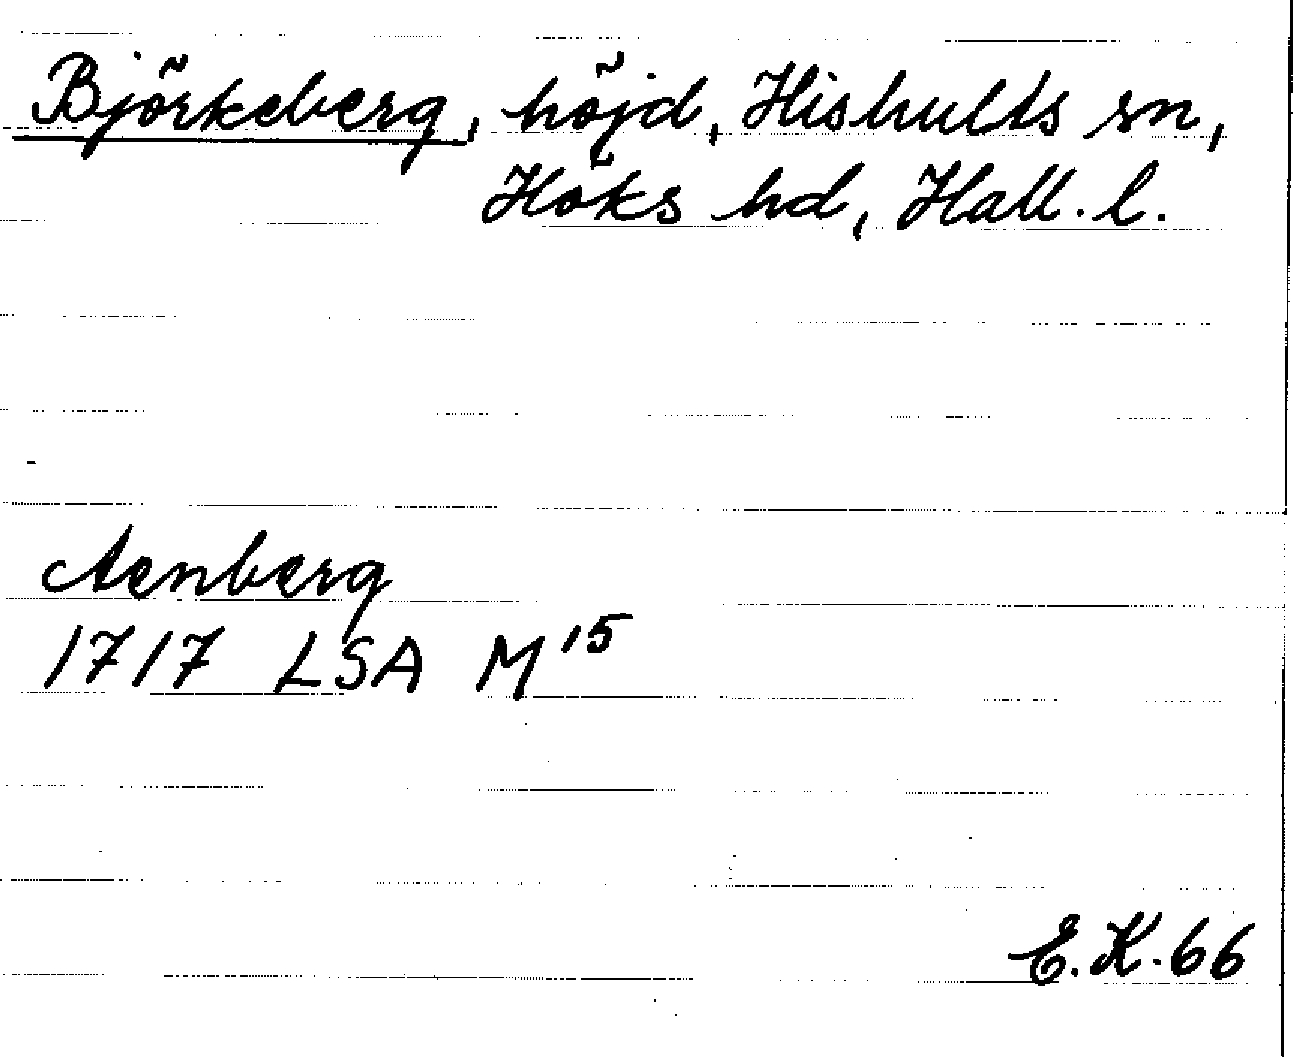 Björkeberg, höjd, Hishults sn,
Höks hd, Hall. l.
Aenberg
1717 LSA M¹⁵
E.K. 66